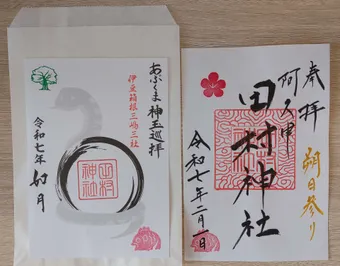 あぶくま神玉巡拝
伊豆箱根三嶋三社
田村
神社
令和七年 月
奉拝
朔日参り
阿久津
田村神社
令和七年二月一日